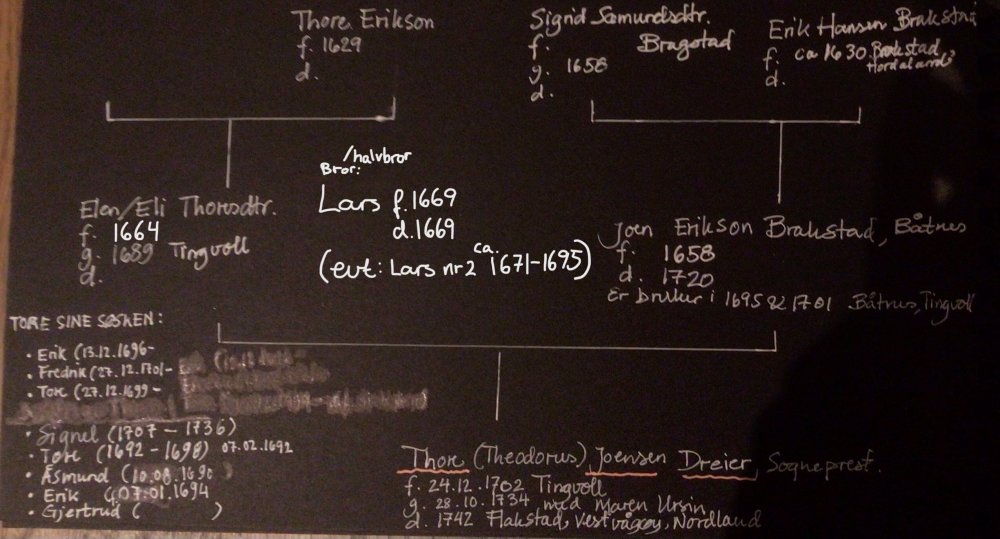 Thore Erikson
f. 1629
d.
Sigrid Samundsdtr.
f. Bragstad
g. 1658
d.
Erik Hansen Brakstad
f. ca 1630 Brakstad
d. Hordaland?
/halvbror
Bror:
Lars f. 1669
d. 1669
(evt: Lars nr 2 ca. 1671-1695)
Elen/Eli Thoresdtr.
f. 1664
g. 1689 Tingvoll
d.
Joen Erikson Brakstad, Båtnes
f. 1658
d. 1720
Er bruker i 1695 1701 Båtnes, Tingvoll
TORE SINE SØSKEN:
• Erik (13.12.1696-
• Fredrik (27.12.1701-
• Tore (27.12.1699-
• Signel (1707 - 1736)
• Tore (1692 - 1698) 07.02.1692
• Åsmund (10.08.1690
• Erik (07.01.1694
• Gjertrud ( )
Thore (Theodorus) Joensen Dreier, Sogneprest.
f. 24.12.1702 Tingvoll
g. 28.10.1734 med Maren Ursin
d. 1742 Flakstad, Vestvågøy, Nordland